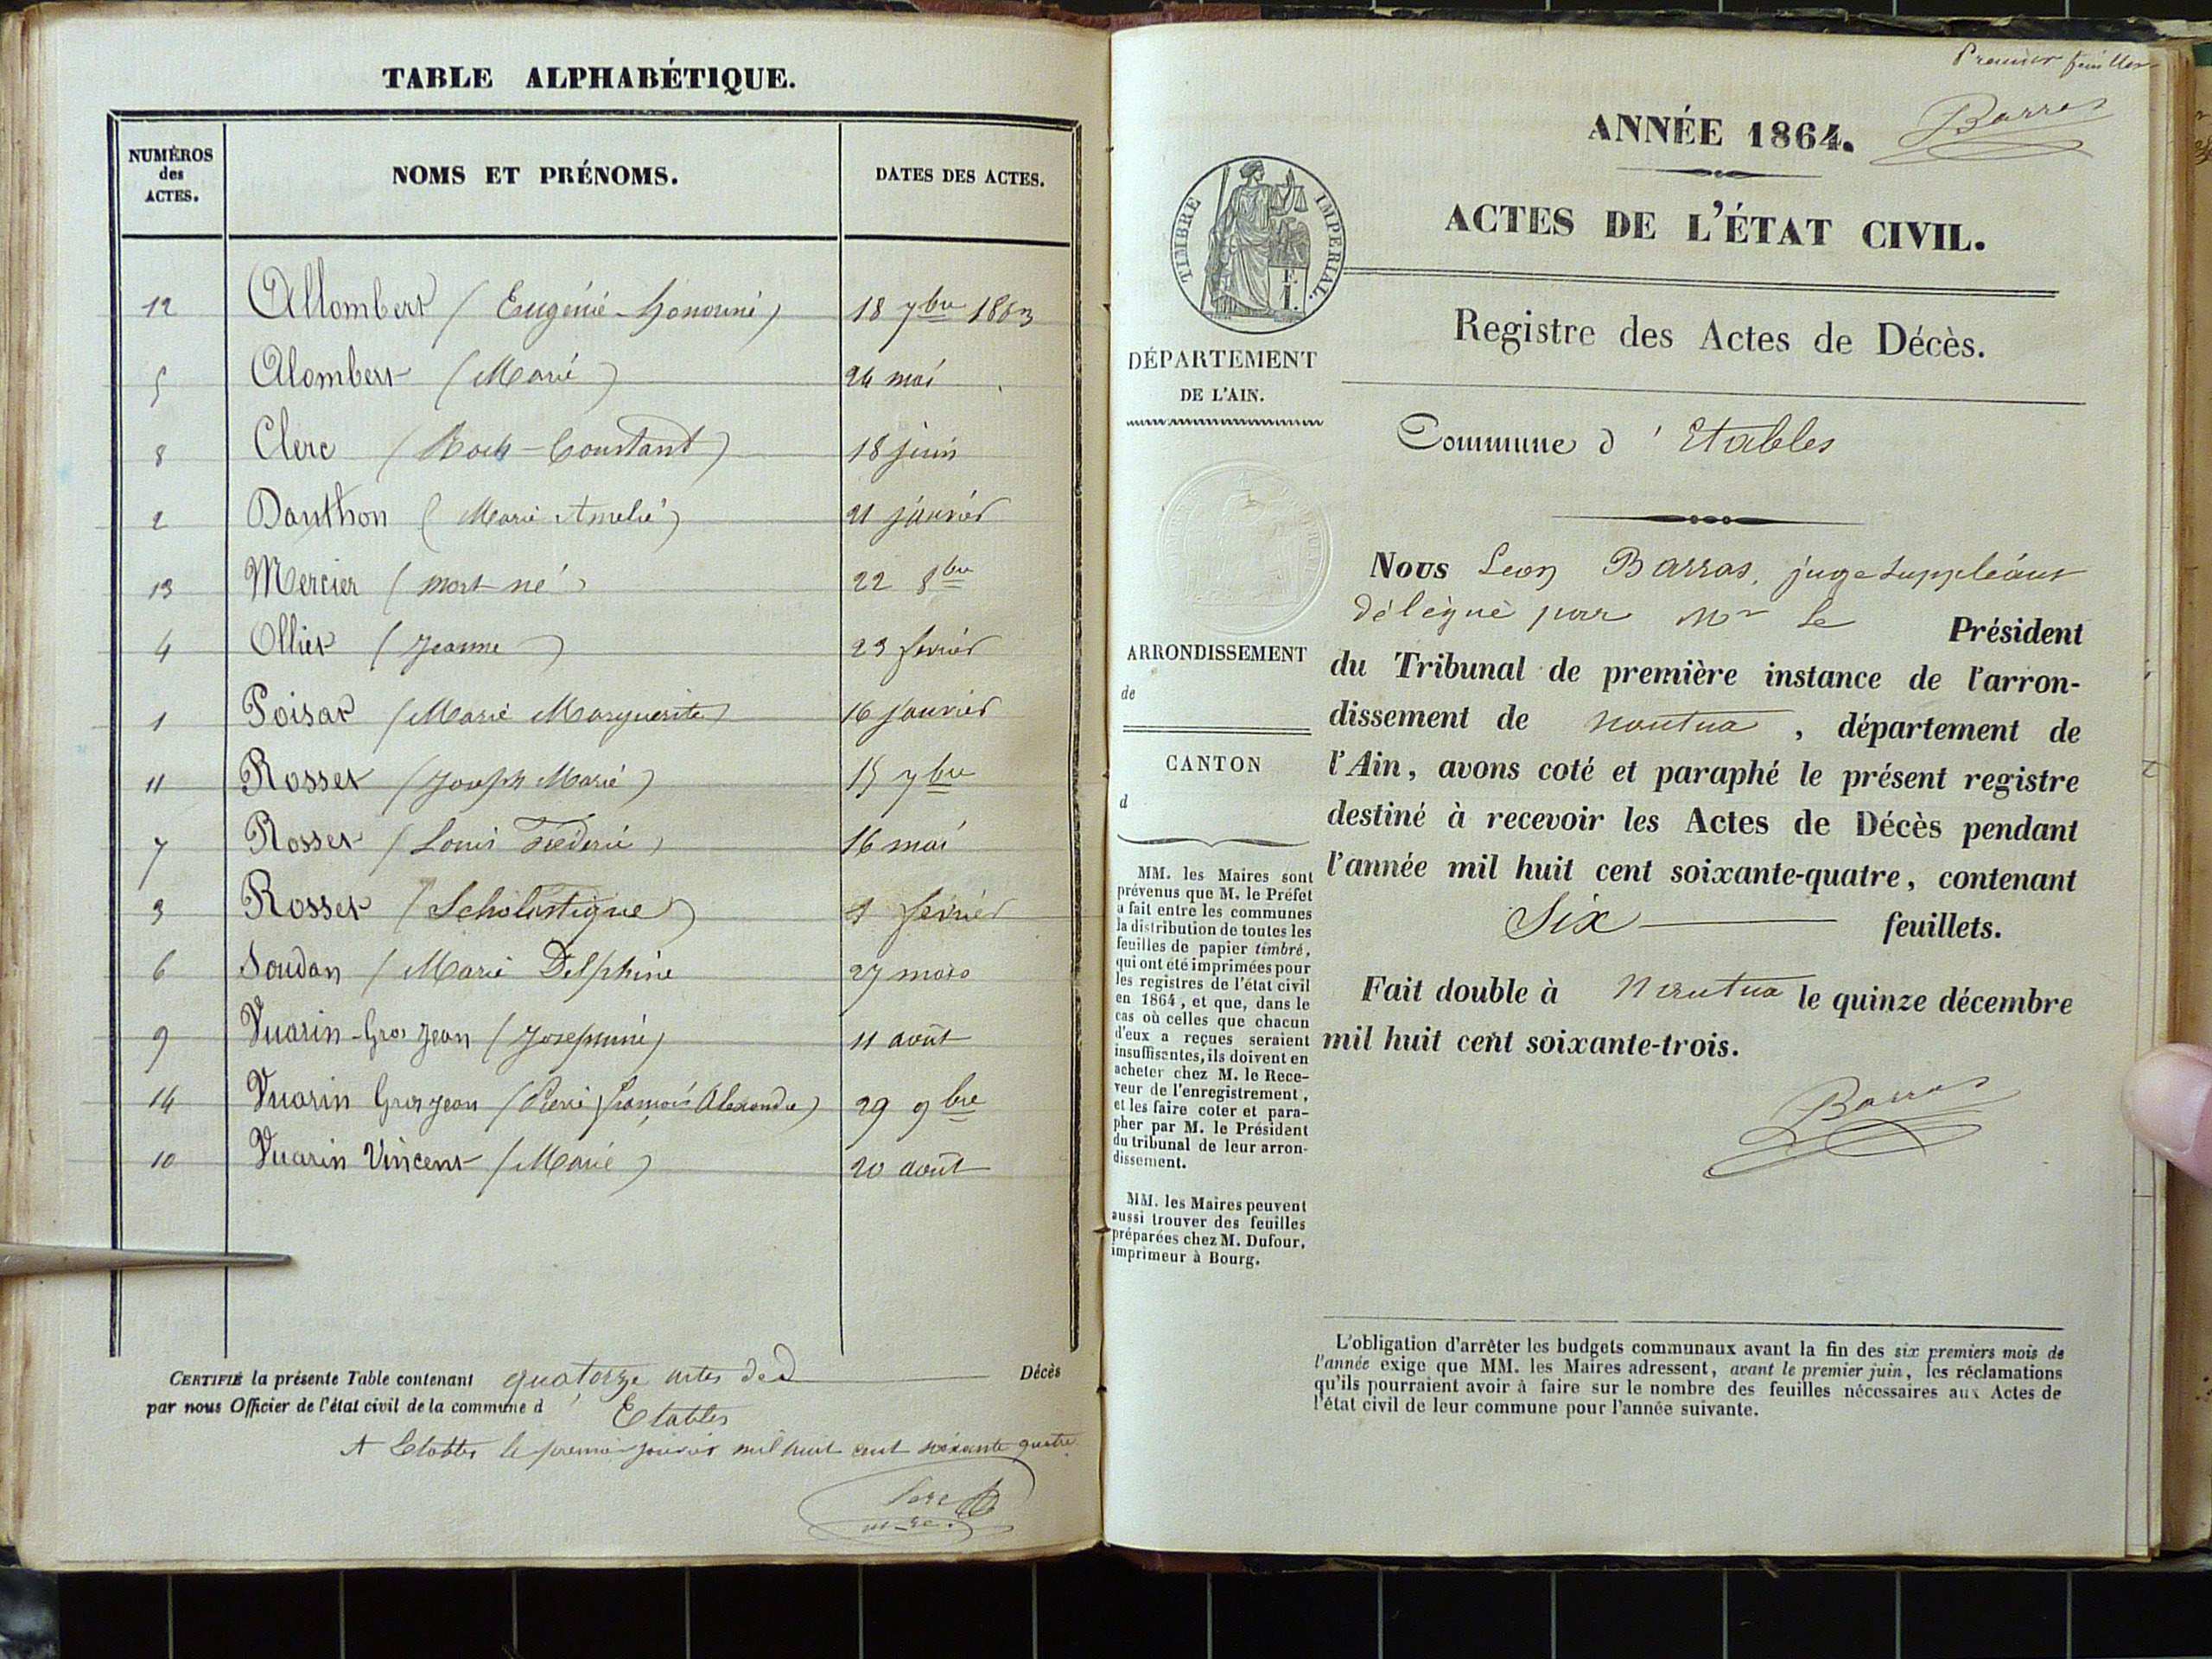 TABLE ALPHABÉTIQUE.
NUMÉROS des ACTES.
NOMS ET PRÉNOMS.
DATES DES ACTES.
12 Allombert (Eugénie-Honorine) 18 7bre 1863
5 Alombert (Marie) 24 mai
8 Clerc (Roch-Constant) 18 juin
2 Danthon (Marie Amelie) 21 janvier
13 Mercier (mort né) 22 8bre
4 Ollier (Jeanne) 23 fevrier
1 Poisat (Marie Marguerite) 16 janvier
11 Rosset (Joseph Marie) 15 7bre
7 Rosset (Louis Fréderic) 16 mai
3 Rosset (Scholastique) fevrier
6 Soudan (Marie Delphine 27 mars
9 Vuarin-Gros Jean (Josephine) 11 août
14 Vuarin Gros Jean (Pierre François Alexandre) 29 9bre
10 Vuarin Vincent (Marie) 20 août
CERTIFIÉ la présente Table contenant quatorze actes de D Décès
par nous Officier de l'état civil de la commune d' Etables
A Etables le premier janvier mil huit cent soixante quatre
Premier feuillet
Barras
ANNÉE 1864.
ACTES DE L'ÉTAT CIVIL.
TIMBRE IMPERIAL.
Registre des Actes de Décès.
DÉPARTEMENT
DE L'AIN.
Commune d' Etables
Nous Leon Barras, juge suppléant
délégué par Mr le Président
du Tribunal de première instance de l'arron-
dissement de nantua, département de
l'Ain, avons coté et paraphé le présent registre
destiné à recevoir les Actes de Décès pendant
l'année mil huit cent soixante-quatre, contenant
Six feuillets.
Fait double à Nantua le quinze décembre
mil huit cent soixante-trois.
Barras
ARRONDISSEMENT
de
CANTON
d
MM. les Maires sont
prévenus que M. le Préfet
a fait entre les communes
la distribution de toutes les
feuilles de papier timbré,
qui ont été imprimées pour
les registres de l'état civil
en 1864, et que, dans le
cas où celles que chacun
d'eux a reçues seraient
insuffisantes, ils doivent en
acheter chez M. le Rece-
veur de l'enregistrement,
et les faire coter et para-
pher par M. le Président
du tribunal de leur arron-
dissement.
MM. les Maires peuvent
aussi trouver des feuilles
préparées chez M. Dufour,
imprimeur à Bourg.
L'obligation d'arrêter les budgets communaux avant la fin des six premiers mois de
l'année exige que MM. les Maires adressent, avant le premier juin, les réclamations
qu'ils pourraient avoir à faire sur le nombre des feuilles nécessaires aux Actes de
l'état civil de leur commune pour l'année suivante.